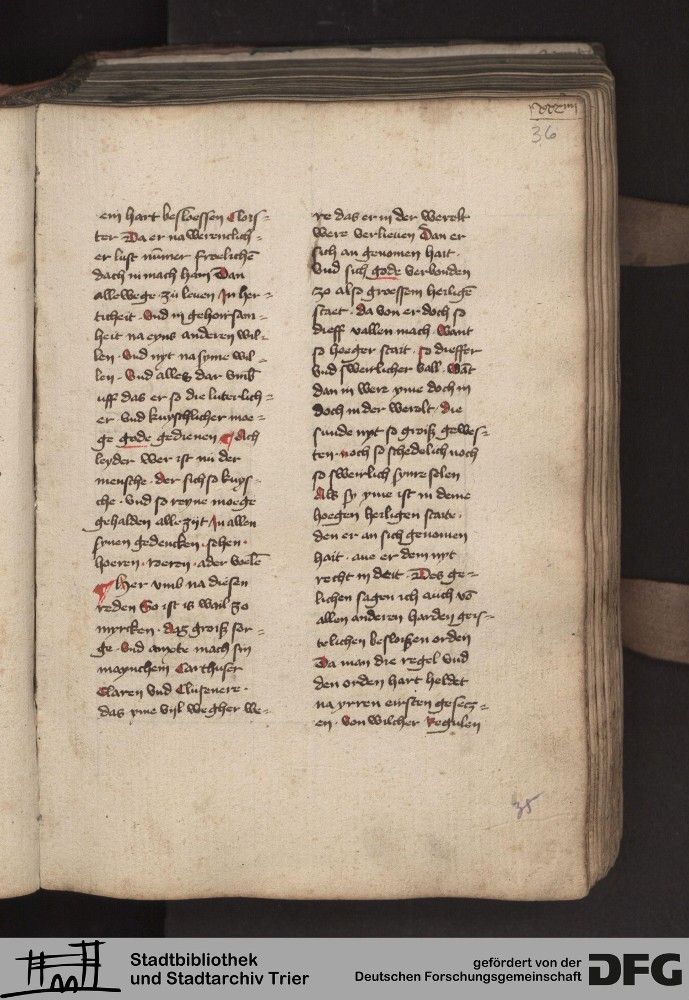 36
ein hart besloessen Clois-
ter Da er na werentlich-
er lust nummer froelichē
dach in mach hain Dan
alle wege zu leuen In her-
ticheit Vnd in gehoirsam-
heit na eyns anderen wil-
len · Vnd nyt na syme wil-
len · Vnd alles dar vmb
uff das er so die luterlich-
er vnd kuyschlicher moe-
ge gode gedienen Ach
leyder wer ist nu der
mensche · der sich so kuys-
che · Vnd so reyne moege
gehalden alle zijt In allen
synen gedencken · sehen ·
hoeren · roeren · ader voelē
Her vmb na diesen
reden So ist is wail zo
myrcken · das groiß sor-
ge · Vnd anxte mach sin
maynchem Carthuser
Claren vnd Clusenere ·
das yme vijl wegher we-
re das er in der werelt
were verlieuen Dan er
sich an genomen hait ·
Vnd sich gode verbonden
zo also groessem heiligē
staet · da von er doch so
dieff vallen mach · Want
so hoeger stait · so dieffer
Vnd sweirlicher vall · Wāt
dan in were yme doch in
doch in der werelt · die
sunde nyt so groiß gewes-
ten · noch so schedelich noch
so sweirlich synre selen
Als sy yme ist in deme
hoegen heiligen staite ·
den er an sich genomen
hait · aue er dem nyt
recht in deit Des ge-
lichen sagen ich auch vō
allen anderen harden geis-
telichen besloißen orden
Da man die regel vnd
den orden hart heldet
na yrren eirsten gesecz-
en · Von wilcher Regulen
35
Stadtbibliothek
und Stadtarchiv Trier
gefördert von der
Deutschen Forschungsgemeinschaft
DFG